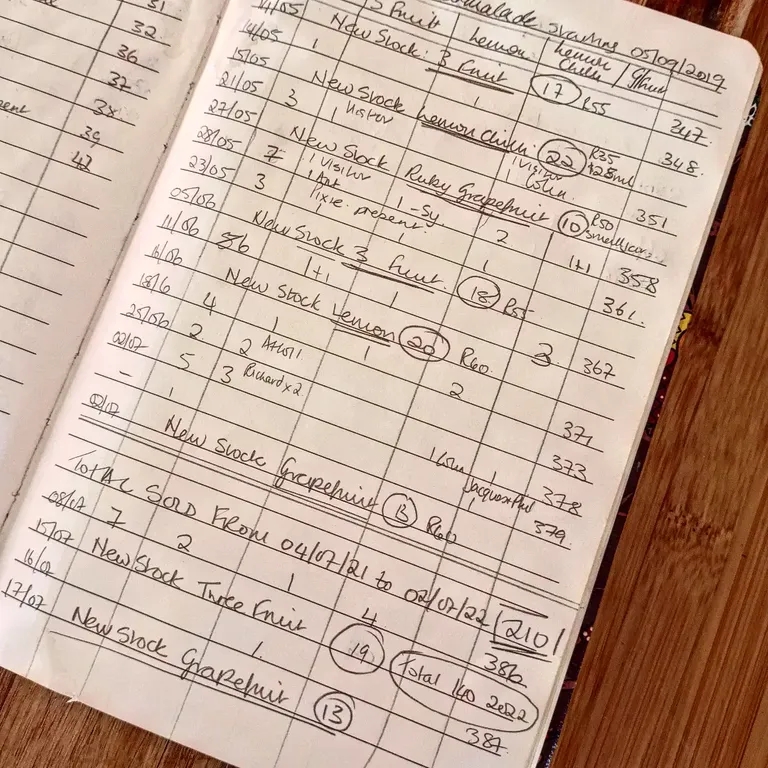 31
32
36
37
38
39
42
starting 05/09/2019
14/05 3 Fruit Lemon Lemon Chilli / Gfruit
14/05 New Stock: 3 Fruit 17 R55 347
15/05 1 1 348
21/05 New Stock Lemon Chilli: 22 R35 125ml
27/05 3 1 Visitor 1 Visitor 1 351
28/05 New Stock Ruby Grapefruit 10 R50
23/05 7 1 Visitor 1 Ant 1 - Sy 2 1+1 358
3 Pixie present 1 1 361
05/06 New Stock 3 Fruit 18 R55
11/06 6 1+1 1 3 367
16/06 New Stock Lemon 20 R60
18/6 4 1 1 2 371
25/06 2 2 373
02/07 5 3 Richard x 2 1 378
- 1 379
02/07 New Stock Grapefruit 13 R60
TOTAL SOLD FROM 04/07/21 to 02/07/22 210
08/07 7 2 1 4 386
15/07 New Stock Three Fruit 19 Total 140 2022
16/07 1 387
17/07 New Stock Grapefruit 13